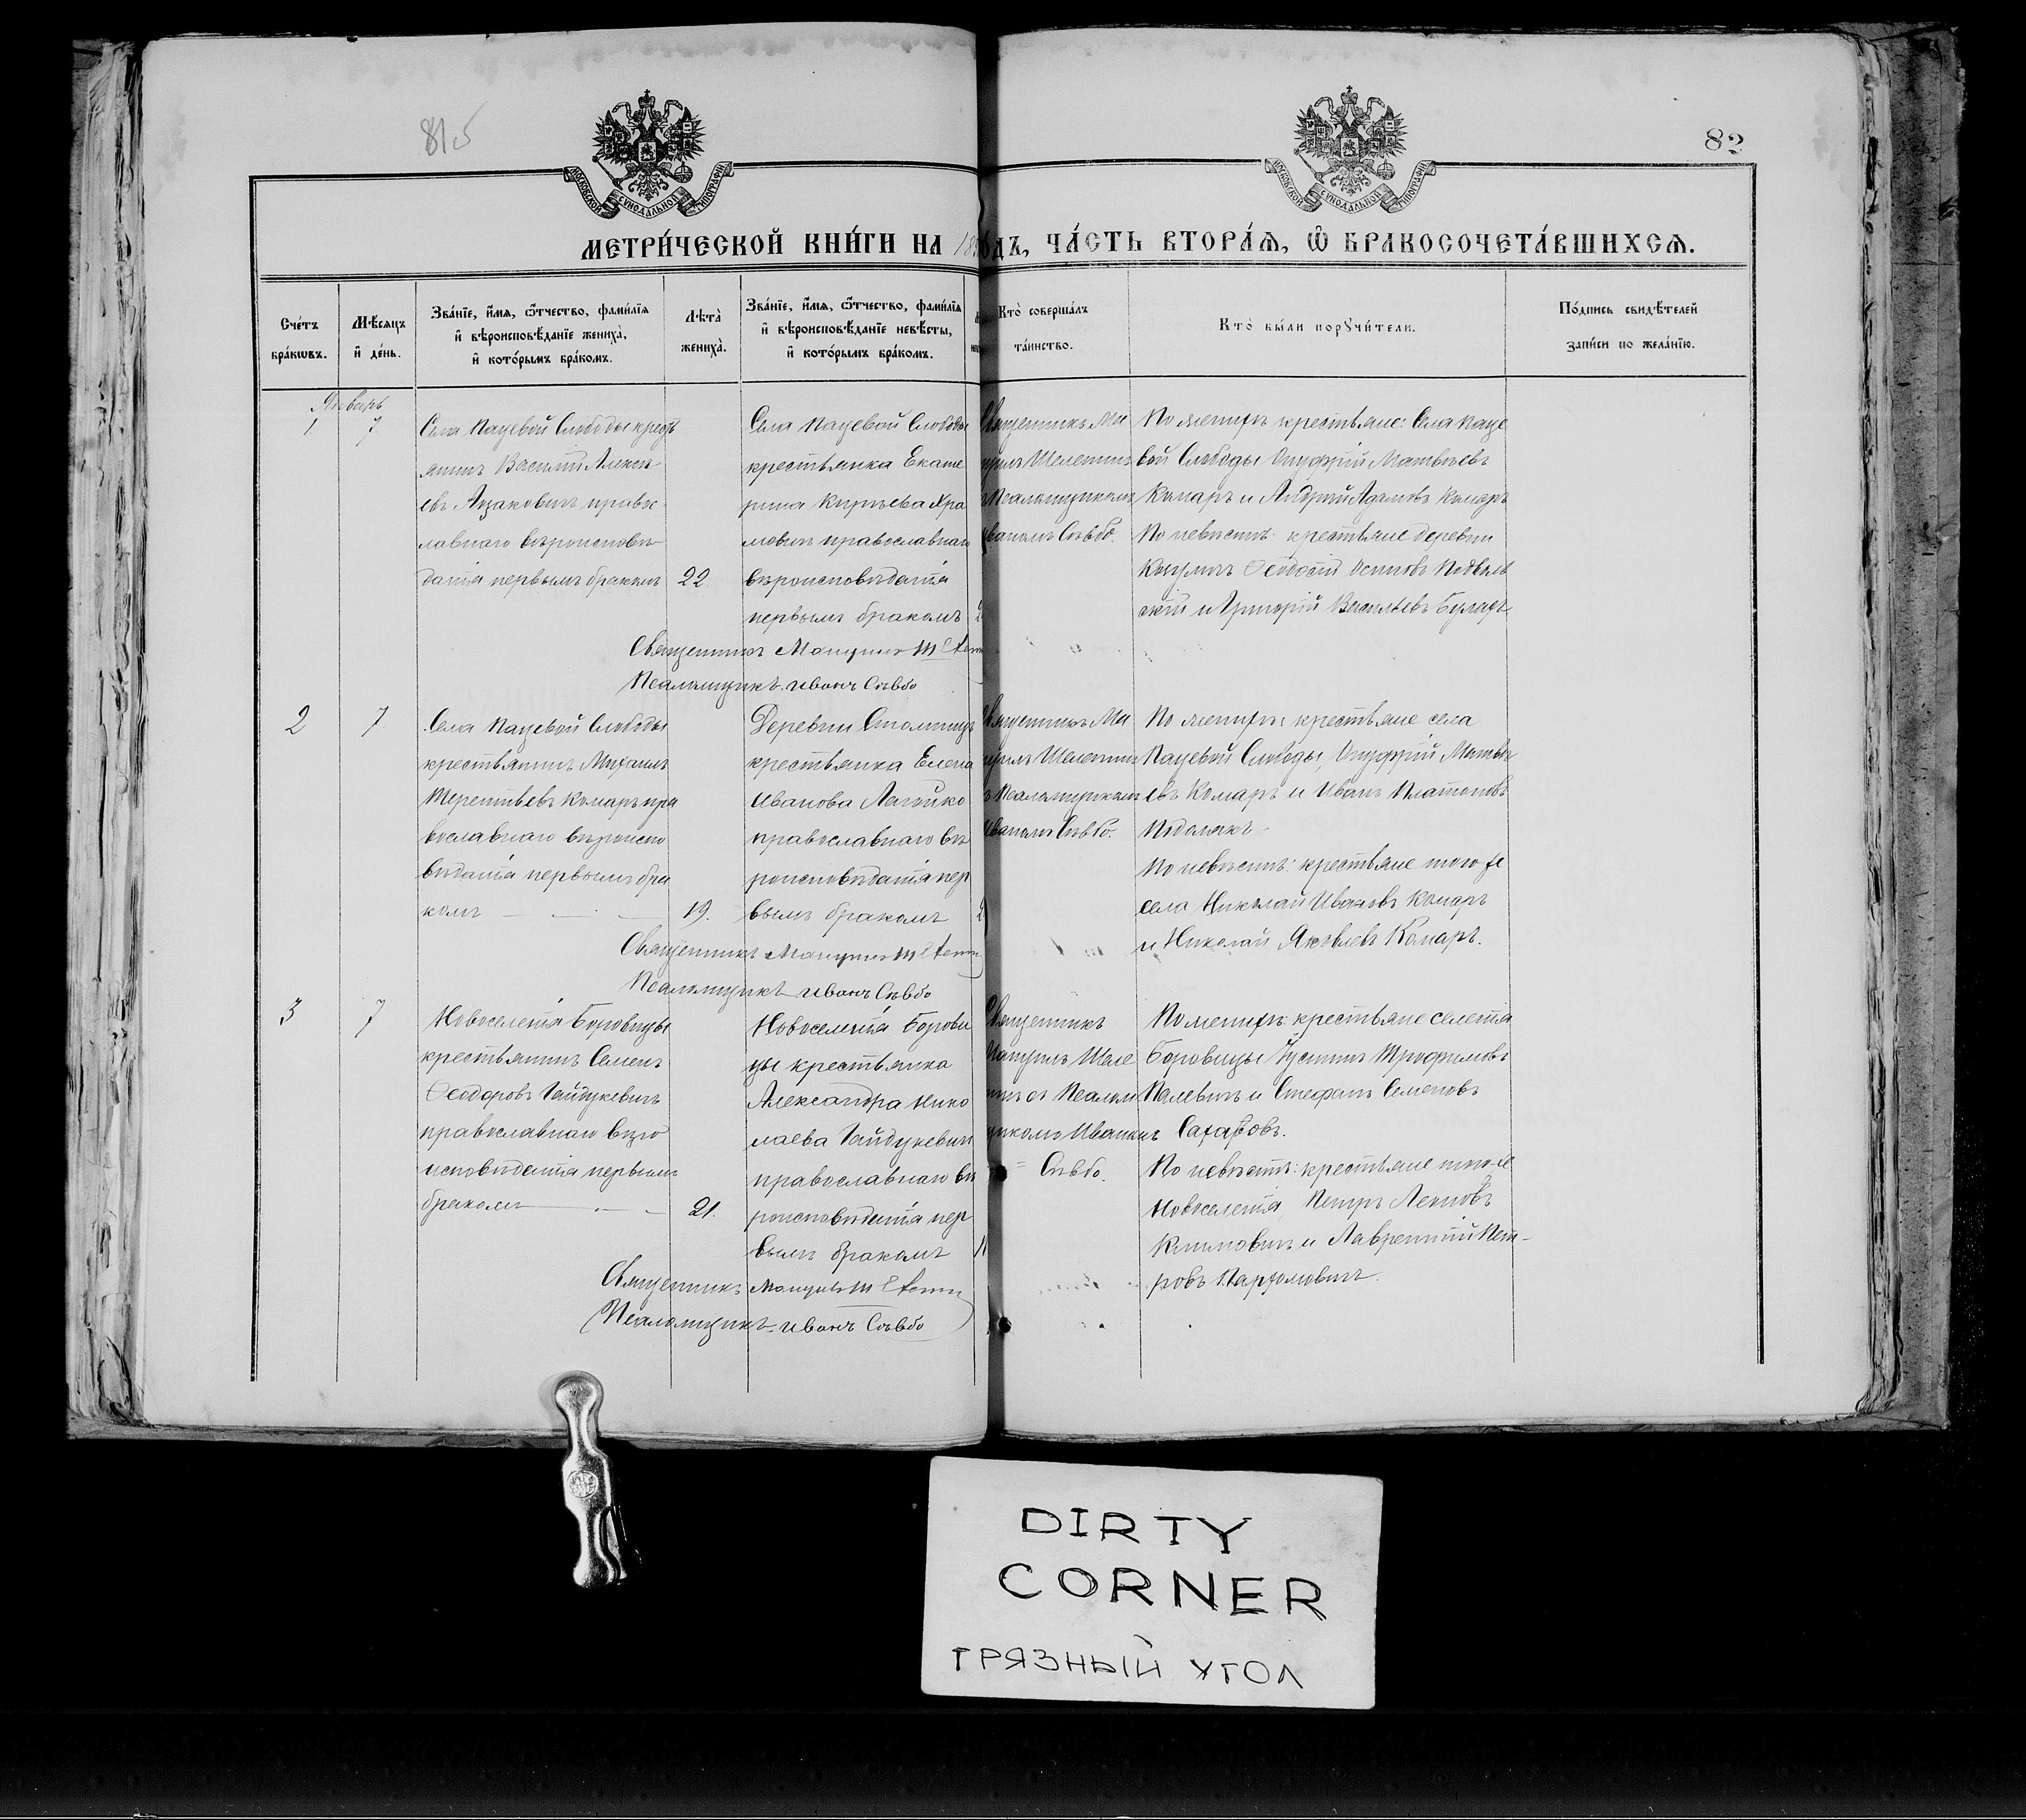 815
82
МОСКОВСКОЙ СУНОДАЛЬНОЙ ТИПОГРАФІИ
МОСКОВСКОЙ СУНОДАЛЬНОЙ ТИПОГРАФІИ
МЕТРИ́ЧЕСКОЙ КНИ́ГИ НА 18
ОДЪ, ЧА́СТЬ ВТОРА́Ѧ, Ѿ БРАКОСОЧЕТА́ВШИХСѦ.
Сче́тъ
бра́кѡвъ.
Мѣсѧцъ
и҆ де́нь.
Зва́нїе, и҆́мѧ, ѻ҆́тчество, фами́лїѧ
и҆ вѣроисповѣ́данїе жениха̀,
и҆ кото́рымъ бра́комъ.
Лѣта̀
жениха̀.
Зва́нїе, и҆́мѧ, ѻ҆́тчество, фами́лїѧ
и҆ вѣроисповѣ́данїе невѣ́сты,
и҆ кото́рымъ бра́комъ.
Кто̀ соверша́лъ
та́инство.
Кто̀ бы́ли порꙋчи́тели.
По́дпись свидѣ́телей
за́писи по жела́нїю.
Январь
1
7
Села Пацевой Слободы крест
янинъ Василій Алексѣ
евъ Азаковичъ правос
лавнаго вѣроисповѣ
данія первымъ бракомъ
22
Села Пацевой Слободы
крестьянка Екате
рина Кирѣева Хра
мовичъ православнаго
вѣроисповѣданія
первымъ бракомъ
Псаломщикомъ
Иваномъ Съвбо.
По женихѣ крестьяне: Села Паце
вой Слободы Онуфрій Матвѣевъ
Комаръ и Андрей Адамовъ Комаръ
По невѣстѣ: крестьяне деревни
Ѳеодосій Осиповъ Подваль
скій и Григорій Васильевъ
Священникъ
Псаломщикъ Иванъ Съвбо
2
7
Села Пацевой Слободы
крестьянинъ Михаилъ
Терентьевъ Комаръ пра
вославнаго вѣроиспо
вѣданія первымъ бра
комъ
19.
Деревни
крестьянка Елена
Иванова
православнаго вѣ
роисповѣданія пер
вымъ бракомъ
Священникъ Ма
Псаломщикомъ
Иваномъ Съвбо.
По женихѣ: крестьяне села
Пацевой Слободы, Онуфрій Матвѣ
евъ Комаръ и Иванъ Платоновъ
Подолякъ
По невѣстѣ: крестьяне того же
села Николай Ивановъ Комаръ
и Николай Яковлевъ Комаръ.
Священникъ
Псаломщикъ Иванъ Съвбо
3
7
Новоселенія Боровицы
крестьянинъ Семенъ
Ѳеодоровъ Гайдукевичъ
православнаго вѣро
исповѣданія первымъ
бракомъ
21.
Новоселенія Борови
цы крестьянка
Александра Нико
лаева Гайдукевичъ
православнаго вѣ
роисповѣданія пер
вымъ бракомъ
Священникъ
съ Псалом
щикомъ Иваномъ
Съвбо.
По женихѣ: крестьяне селенія
Боровицы Іустинъ Трофимовъ
Палевичъ и Стефанъ Семеновъ
Сахаровъ.
По невѣстѣ: крестьяне того же
Новоселенія, Петръ Леоновъ
Климовичъ и Лаврентій Пет-
ровъ Пархомовичъ.
Священникъ
Псаломщикъ Иванъ Съвбо
DIRTY
CORNER
ГРЯЗНЫЙ УГОЛ